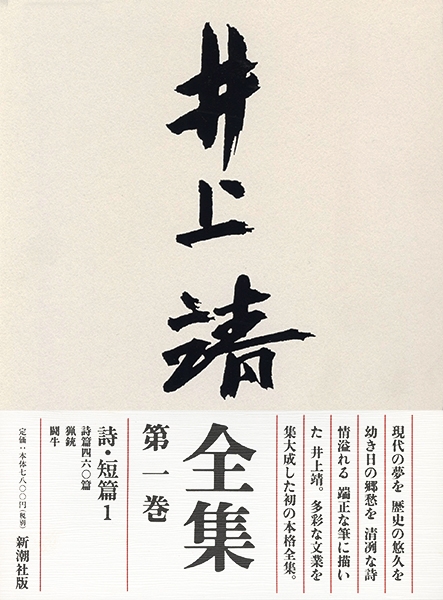 井上靖
現代の夢を 歴史の悠久を
幼き日の郷愁を 清冽な詩
情溢れる 端正な筆に描い
た 井上靖。多彩な文業を
集大成した初の本格全集。
全集
第一巻
詩・短篇1
詩篇四六〇篇
猟銃
闘牛
定価:本体七八〇〇円(税別)
新潮社版